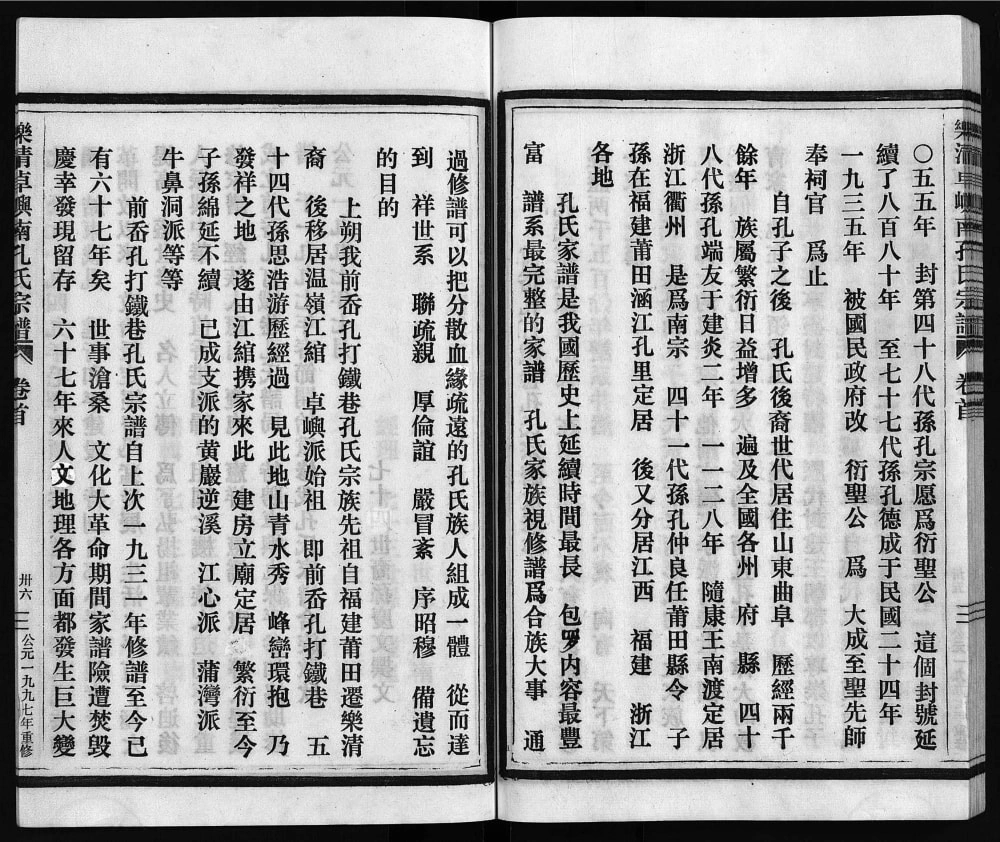 〇五五年　封第四十八代孫孔宗愿爲衍聖公　這個封號延
續了八百八十年　至七十七代孫孔德成于民國二十四年
一九三五年　被國民政府改　衍聖公　爲　大成至聖先師
奉祠官　爲止
自孔子之後　孔氏後裔世代居住山東曲阜　歷經兩千
餘年　族屬繁衍日益增多　遍及全國各州　府　縣　四十
八代孫孔端友于建炎二年　一一二八年　隨康王南渡定居
浙江衢州　是爲南宗　四十一代孫孔仲良任莆田縣令　子
孫在福建莆田涵江孔里定居　後又分居江西　福建　浙江
各地
孔氏家譜是我國歷史上延續時間最長　包罗内容最豐
富　譜系最完整的家譜　孔氏家族視修譜爲合族大事　通
過修譜可以把分散血緣疏遠的孔氏族人組成一體　從而達
到　祥世系　聯疏親　厚倫誼　嚴冒紊　序昭穆　備遺忘
的目的
上朔我前岙孔打鐵巷孔氏宗族先祖自福建莆田遷樂清
裔　後移居温嶺江綰　卓嶼派始祖　即前岙孔打鐵巷　五
十四代孫思浩游歷經過　見此地山青水秀　峰巒環抱　乃
發祥之地　遂由江綰携家來此　建房立廟定居　繁衍至今
子孫綿延不續　已成支派的黄巖逆溪　江心派　蒲灣派
牛鼻洞派等等
前岙孔打鐵巷孔氏宗譜自上次一九三一年修譜至今已
有六十七年矣　世事滄桑　文化大革命期間家譜險遭焚毀
慶幸發現留存　六十七年來人文地理各方面都發生巨大變
樂清卓嶼南孔氏宗譜　卷首　卅六　公元一九九七年重修